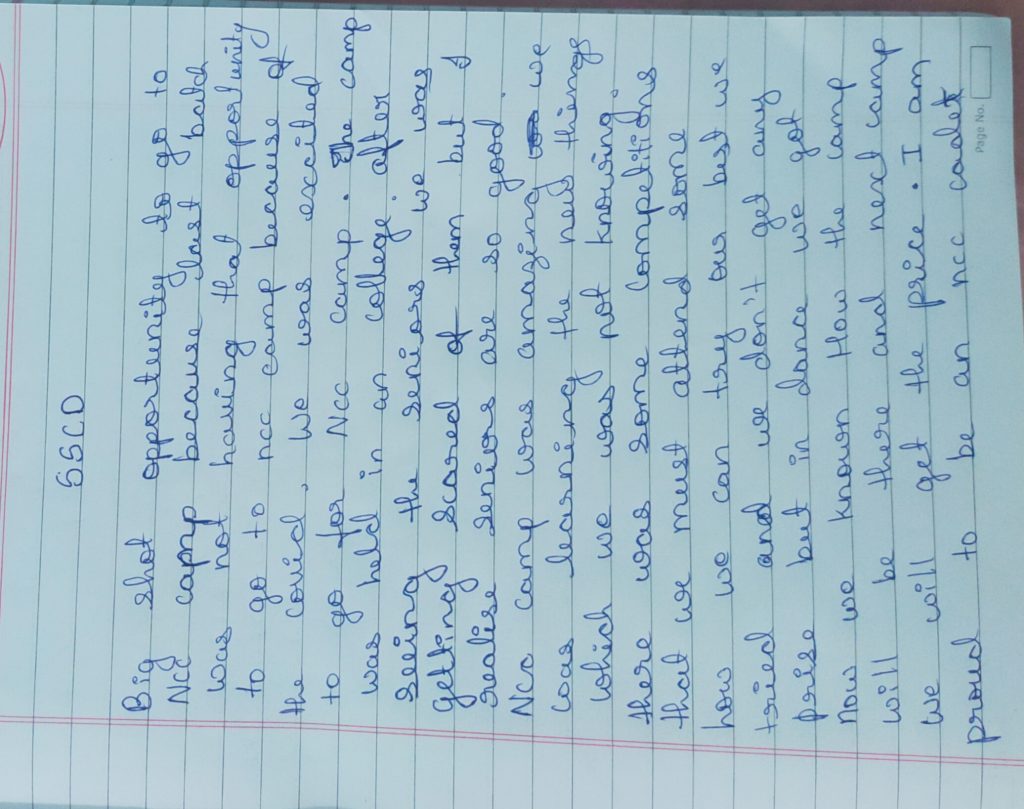 SSCD
Big shot opportunity to go to
Ncc camp because last batch
was not having that opportunity
to go to ncc camp because of
the covid. We was excited
to go for Ncc camp. The camp
was held in an college. after
seeing the seniors we was
getting scared of them but I
realise seniors are so good.
Ncc camp was amazing we
was learning the new things
which we was not knowing.
there was some competitions
that we must attend some
how we can try our best we
tried and we don't get any
prise but in dance we got
Now we known How the camp
will be there and next camp
we will get the price. I am
proud to be an ncc cadet
Page No.